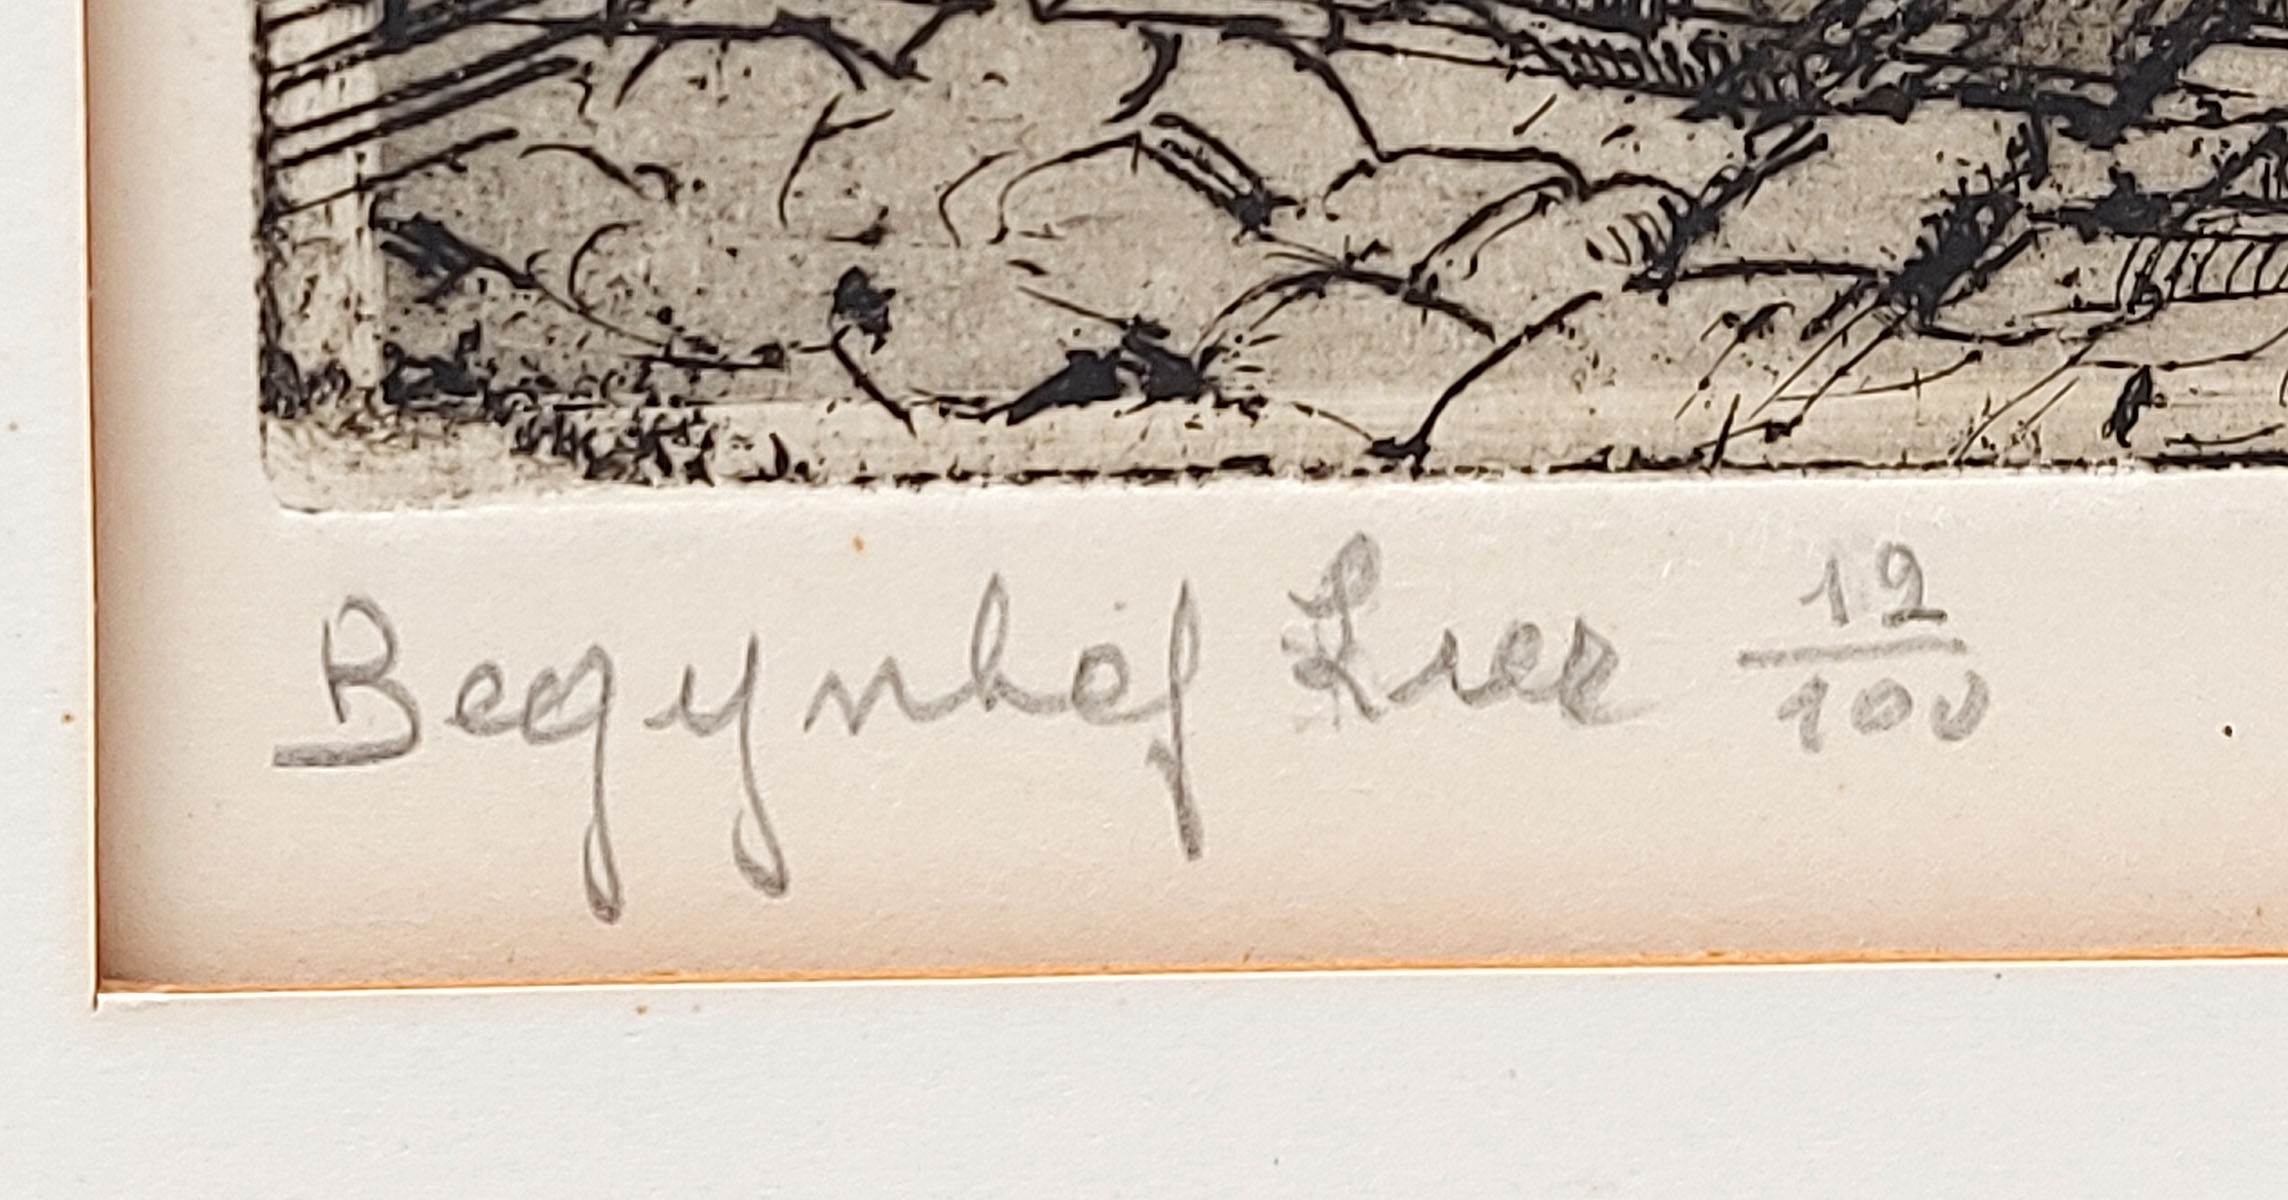 Begynhof Lier 12/100